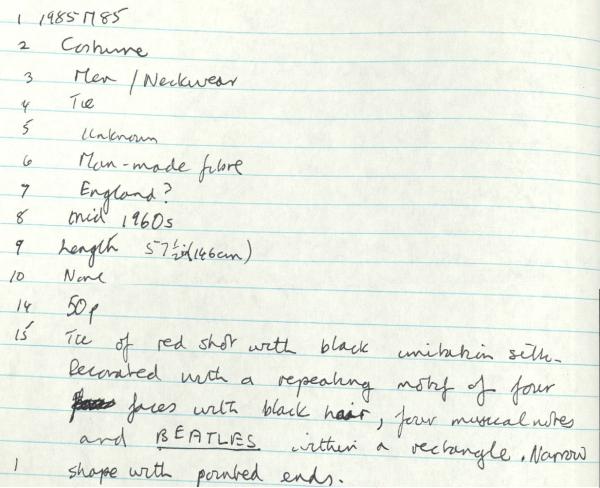 1 1985 M85
2 Costume
3 Men / Neckwear
4 Tie
5 Unknown
6 Man-made fibre
7 England?
8 mid 1960s
9 Length 57½in (146cm)
10 None
14 50p
15 Tie of red shot with black imitation silk.
Decorated with a repeating motif of four
faces with black hair, four musical notes
and BEATLES within a rectangle. Narrow
1 shape with pointed ends.